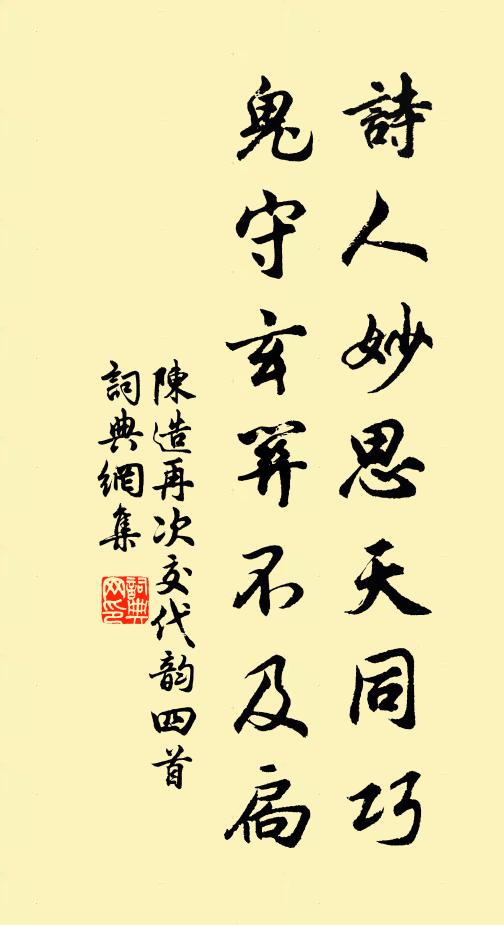 詩人妙思天同巧
鬼守玄關不及扃
陳造再次交代韵四首
詞典網集
詞典
网印